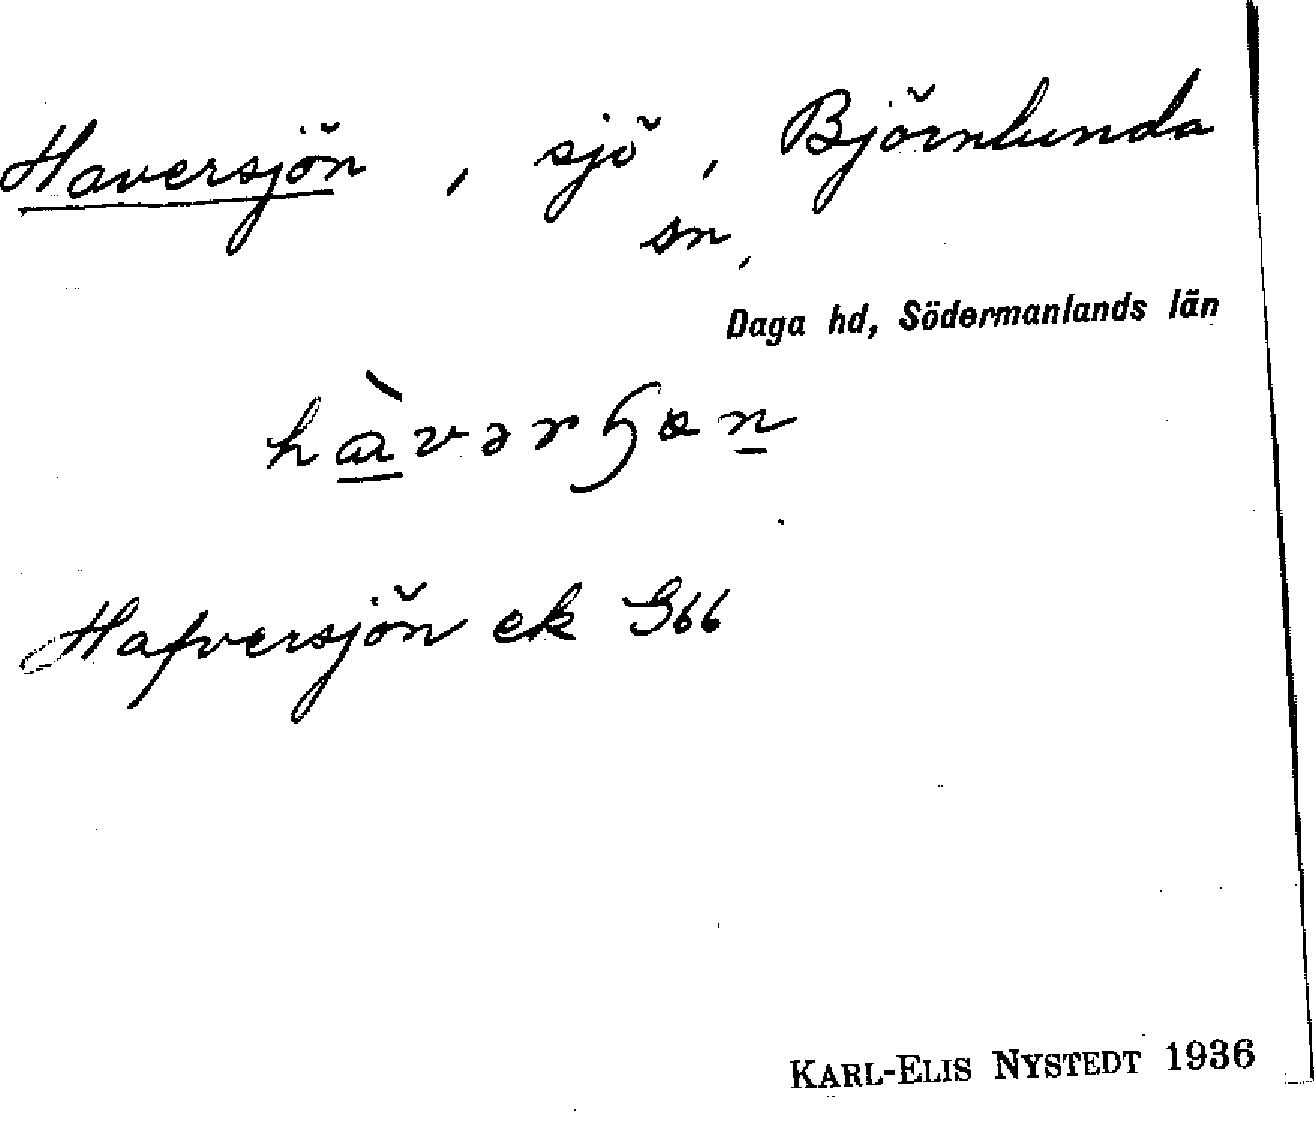 Haversjön, sjö, Björnlunda
sn,
Daga hd, Södermanlands län
hàvərɧøn
Hafversjön ek G66
KARL-ELIS NYSTEDT 1936